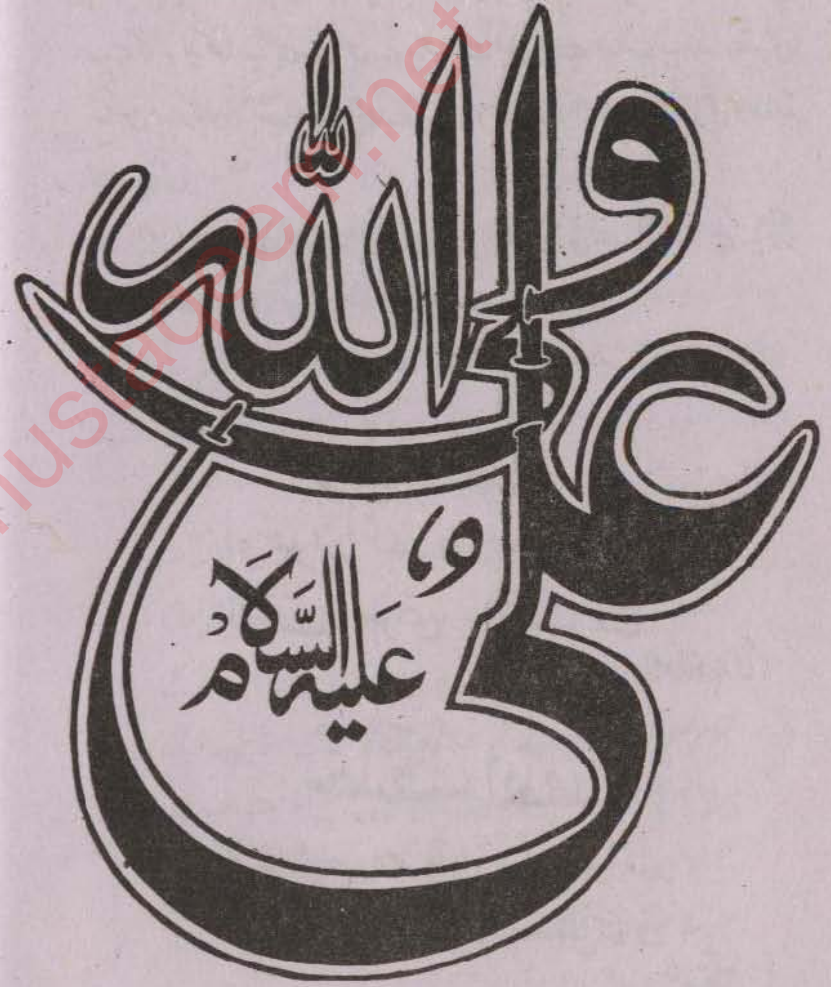 علی ولی الله
علیه السلام
mustaqeem.net